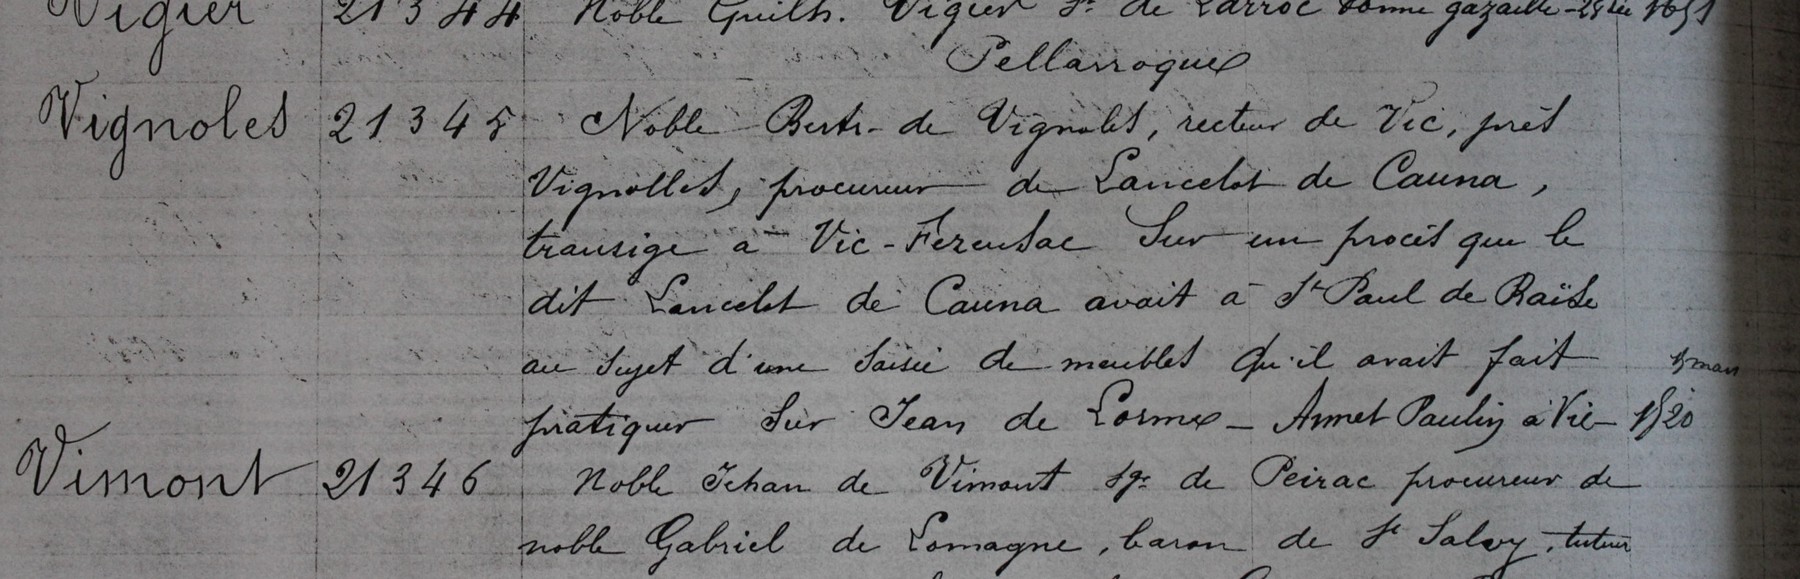 Vigier 21344 Noble Guilh. Vigier Sr de Larroc donne gazaille 1651
Pellarroque
Vignoles 21345 Noble Bertr. de Vignoles, recteur de Vic, près
Vignolles, procureur de Lancelot de Cauna,
transige à Vic-Fezensac sur un procès que le
dit Lancelot de Cauna avait à St Paul de Baïse
au sujet d'une saisie de meubles qu'il avait fait 5 mars
pratiquer sur Jean de Lorme - Annet Paulin à Vic - 1520
Vimont 21346 Noble Jehan de Vimont sgr de Peirac procureur de
noble Gabriel de Lomagne, baron de St Salvy, tuteur